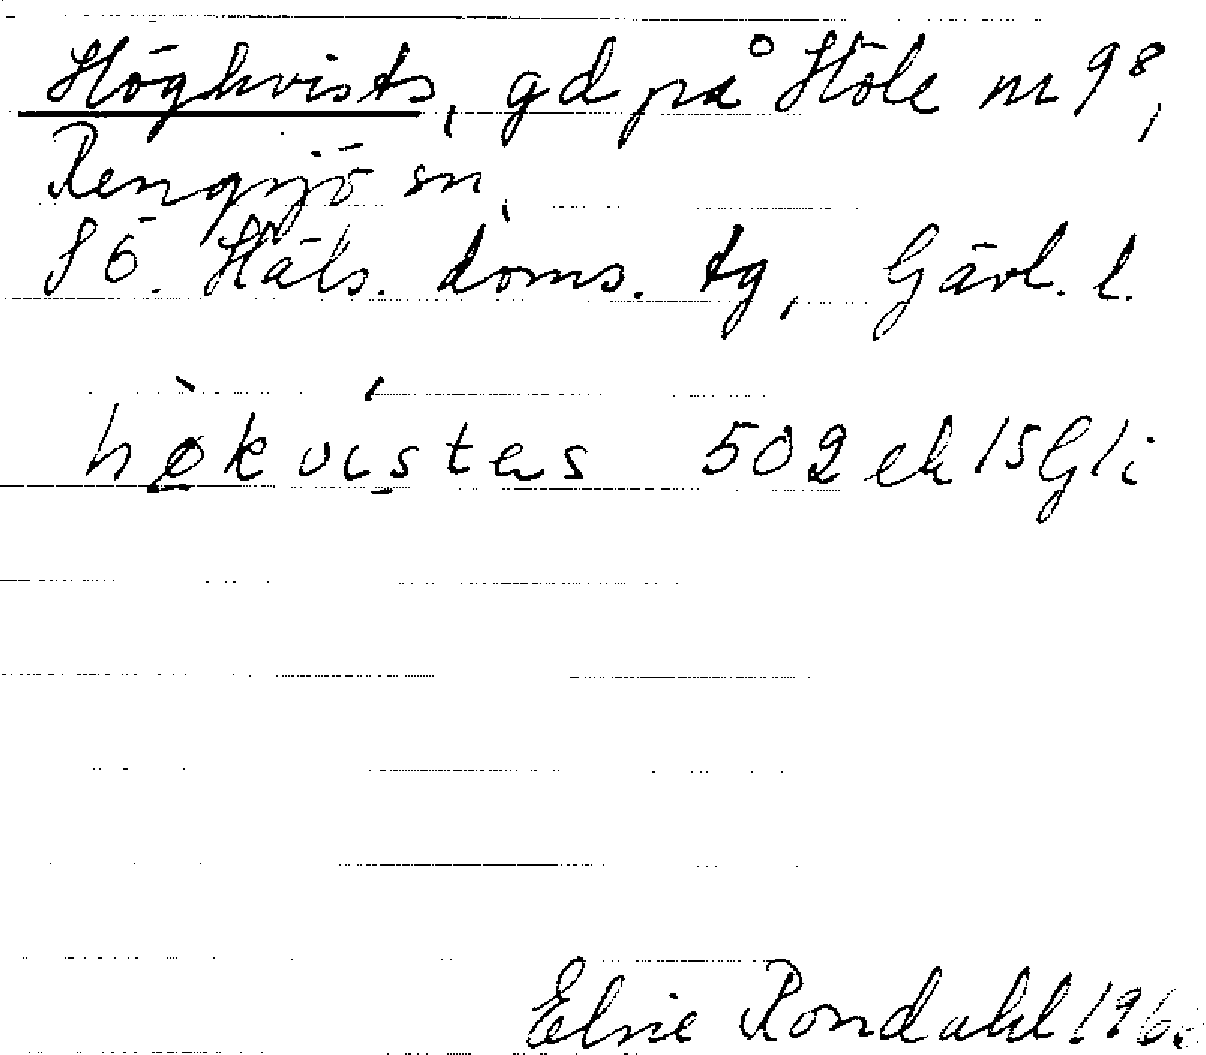 Höghvists, gd på Höle nr 98,
Rengsjö sn,
SÖ. Häls. doms. tg, Gävl. l.
hø̀kvístas 502 ek 15G1i
Elsie Rondahl